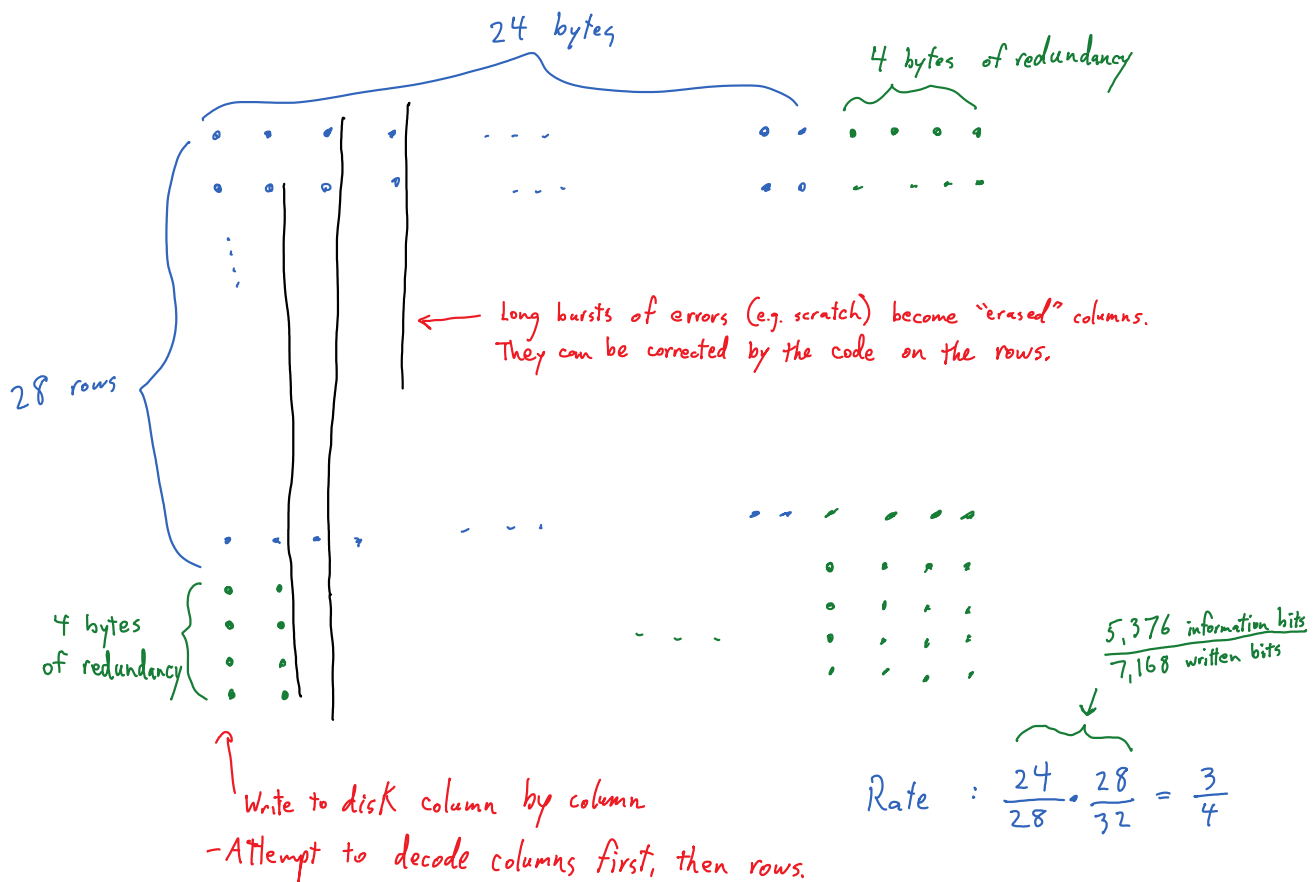 24 bytes
4 bytes of redundancy
Long bursts of errors (e.g. scratch) become "erased" columns.
They can be corrected by the code on the rows.
28 rows
4 bytes
of redundancy
5,376 information bits
7,168 written bits
Write to disk column by column
- Attempt to decode columns first, then rows.
Rate : 24/28 · 28/32 = 3/4